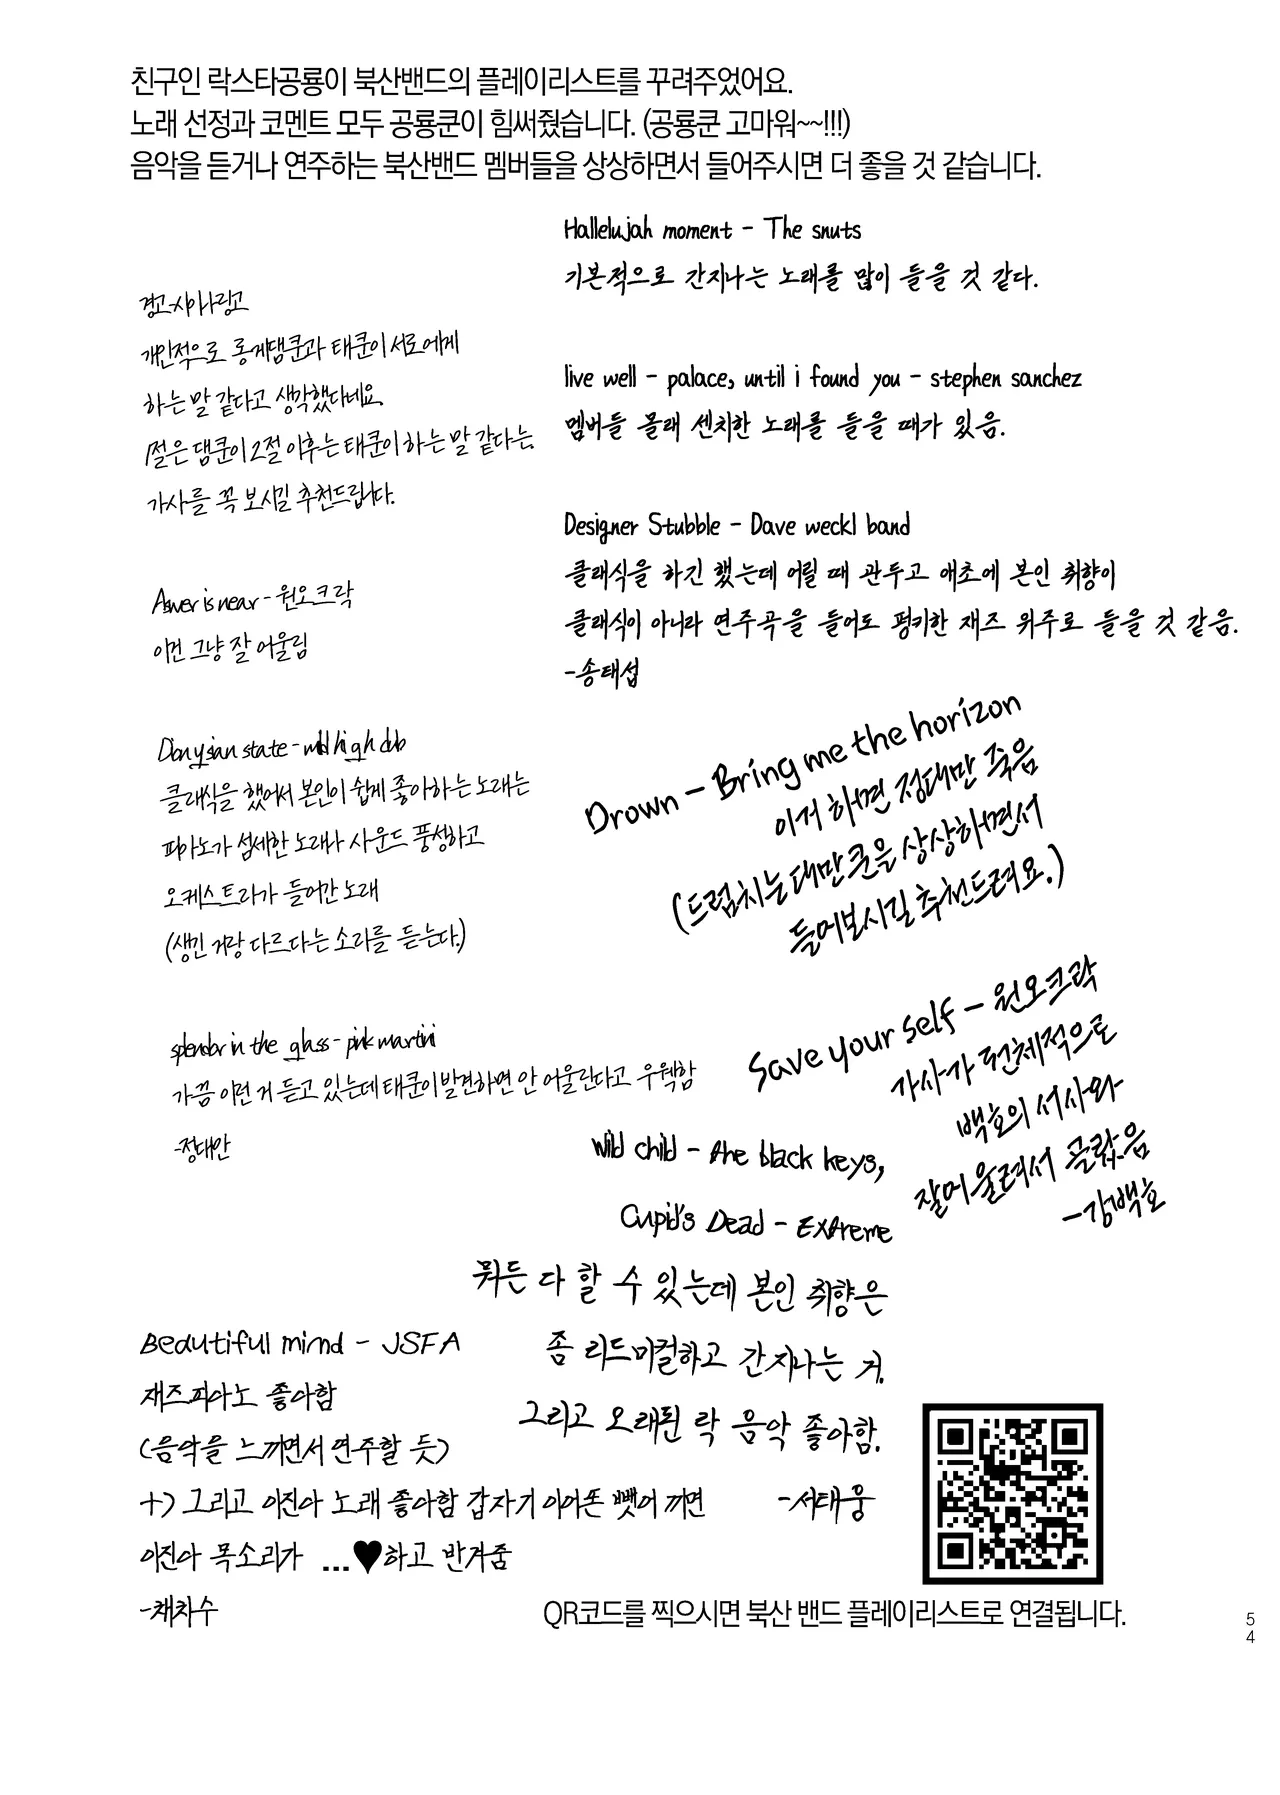 친구인 락스타공룡이 북산밴드의 플레이리스트를 꾸려주었어요.
노래 선정과 코멘트 모두 공룡쿤이 힘써줬습니다. (공룡쿤 고마워~~!!!)
음악을 듣거나 연주하는 북산밴드 멤버들을 상상하면서 들어주시면 더 좋을 것 같습니다.
경고-샤이나링고
개인적으로 롱게댐쿤과 태쿤이 서로에게
하는 말 같다고 생각했다네요.
1절은 댐쿤이 2절 이후는 태쿤이 하는 말 같다는.
가사를 꼭 보시길 추천드립니다.
Aswer is near - 원오크락
이건 그냥 잘 어울림
Dionysian state - mild high club
클래식을 했어서 본인이 쉽게 좋아하는 노래는
피아노가 섬세한 노래나 사운드 풍성하고
오케스트라가 들어간 노래
(생긴 거랑 다르다는 소리를 듣는다.)
splendor in the glass - pink martini
가끔 이런 거 듣고 있는데 태쿤이 발견하면 안 어울린다고 우웩함
-정대만
Hallelujah moment - The snuts
기본적으로 간지나는 노래를 많이 들을 것 같다.
live well - palace, until i found you - stephen sanchez
멤버들 몰래 센치한 노래를 들을 때가 있음.
Designer Stubble - Dave weckl band
클래식을 하긴 했는데 어릴 때 관두고 애초에 본인 취향이
클래식이 아니라 연주곡을 들어도 펑키한 재즈 위주로 들을 것 같음.
-송태섭
Drown - Bring me the horizon
이거 하면 정대만 죽음
(드럼치는 대만쿤을 상상하면서
들어보시길 추천드려요.)
Save your self - 원오크락
가사가 전체적으로
백호의 서사와
잘어울려서 골랐음
-강백호
Wild child - the black keys,
Cupid's Dead - Extreme
뭐든 다 할 수 있는데 본인 취향은
좀 리드미컬하고 간지나는 거.
그리고 오래된 락 음악 좋아함.
-서태웅
Beautiful mind - JSFA
재즈피아노 좋아함
(음악을 느끼면서 연주할 듯)
+) 그리고 이진아 노래 좋아함 갑자기 이어폰 뺏어 끼면
이진아 목소리가 ...♥하고 반겨줌
-채치수
QR코드를 찍으시면 북산 밴드 플레이리스트로 연결됩니다.
54